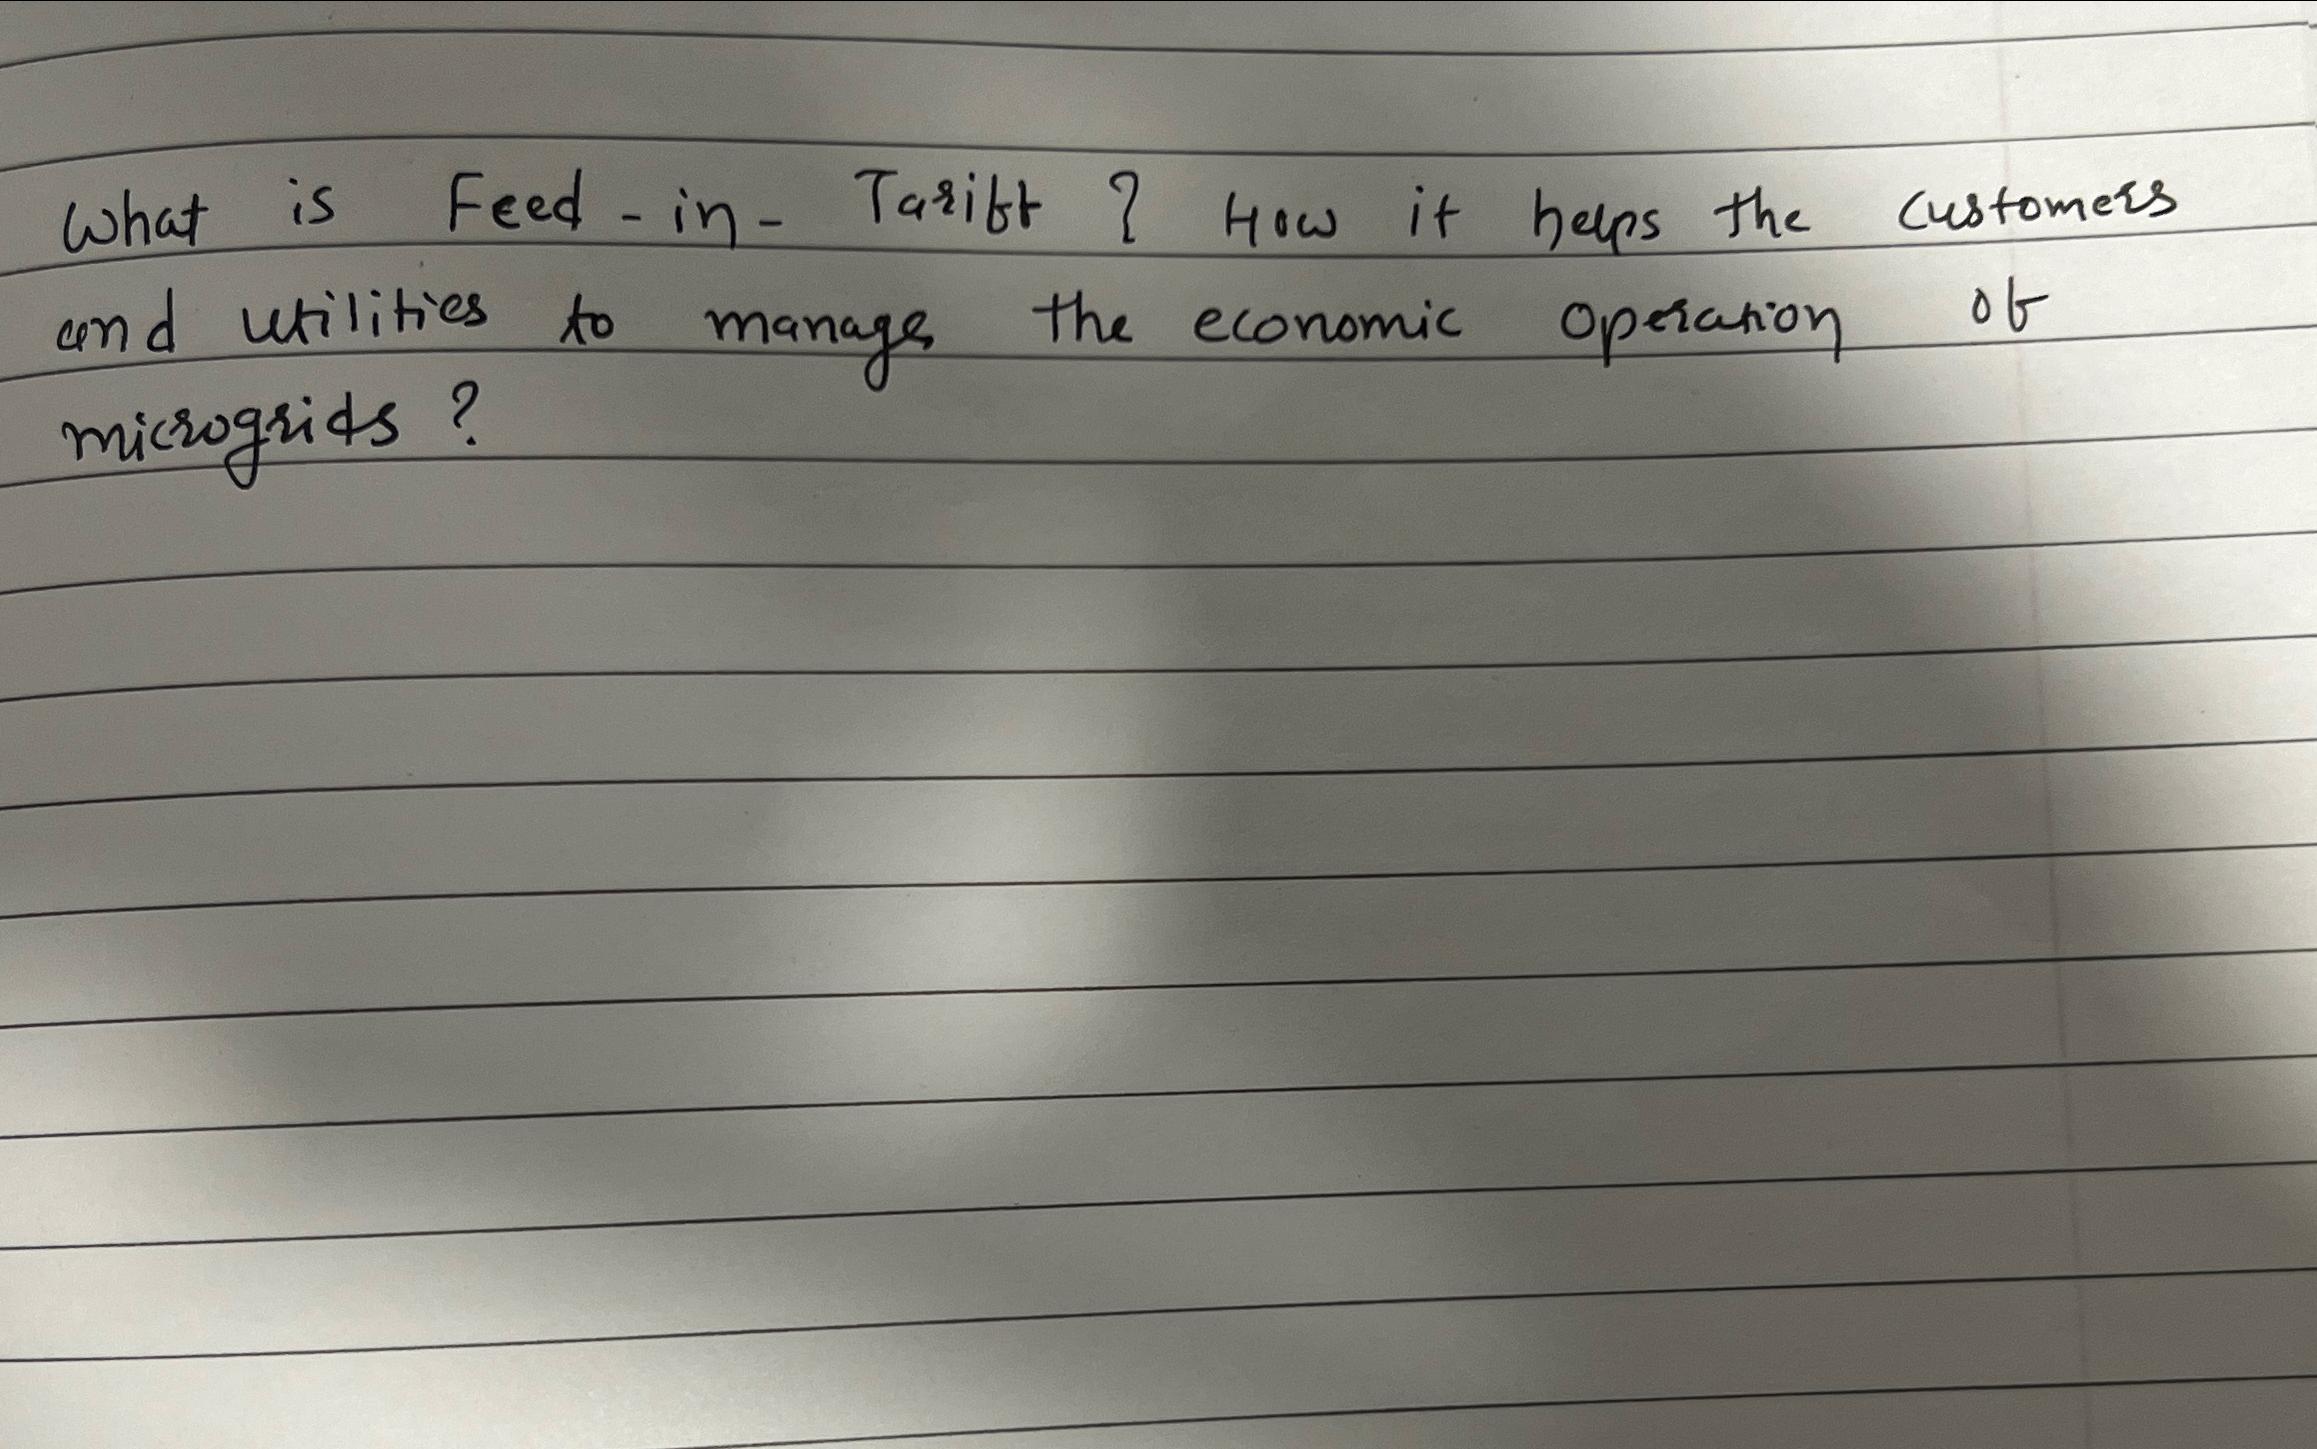 What is Feed-in-Tariff ? How it helps the customers
and utilities to manage the economic operation of
microgrids ?